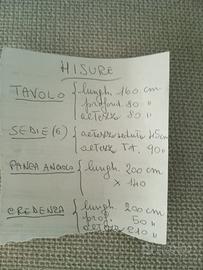 MISURE
TAVOLO { lungh. 160 cm
profond. 80 "
altezza 80 "
SEDIE (6) { altezza seduta 45 cm
altezza TOT. 90 "
PANCA ANGOLO { lungh. 200 cm
x 140
CREDENZA { lungh. 200 cm
prof. 50 "
altezza 210 "